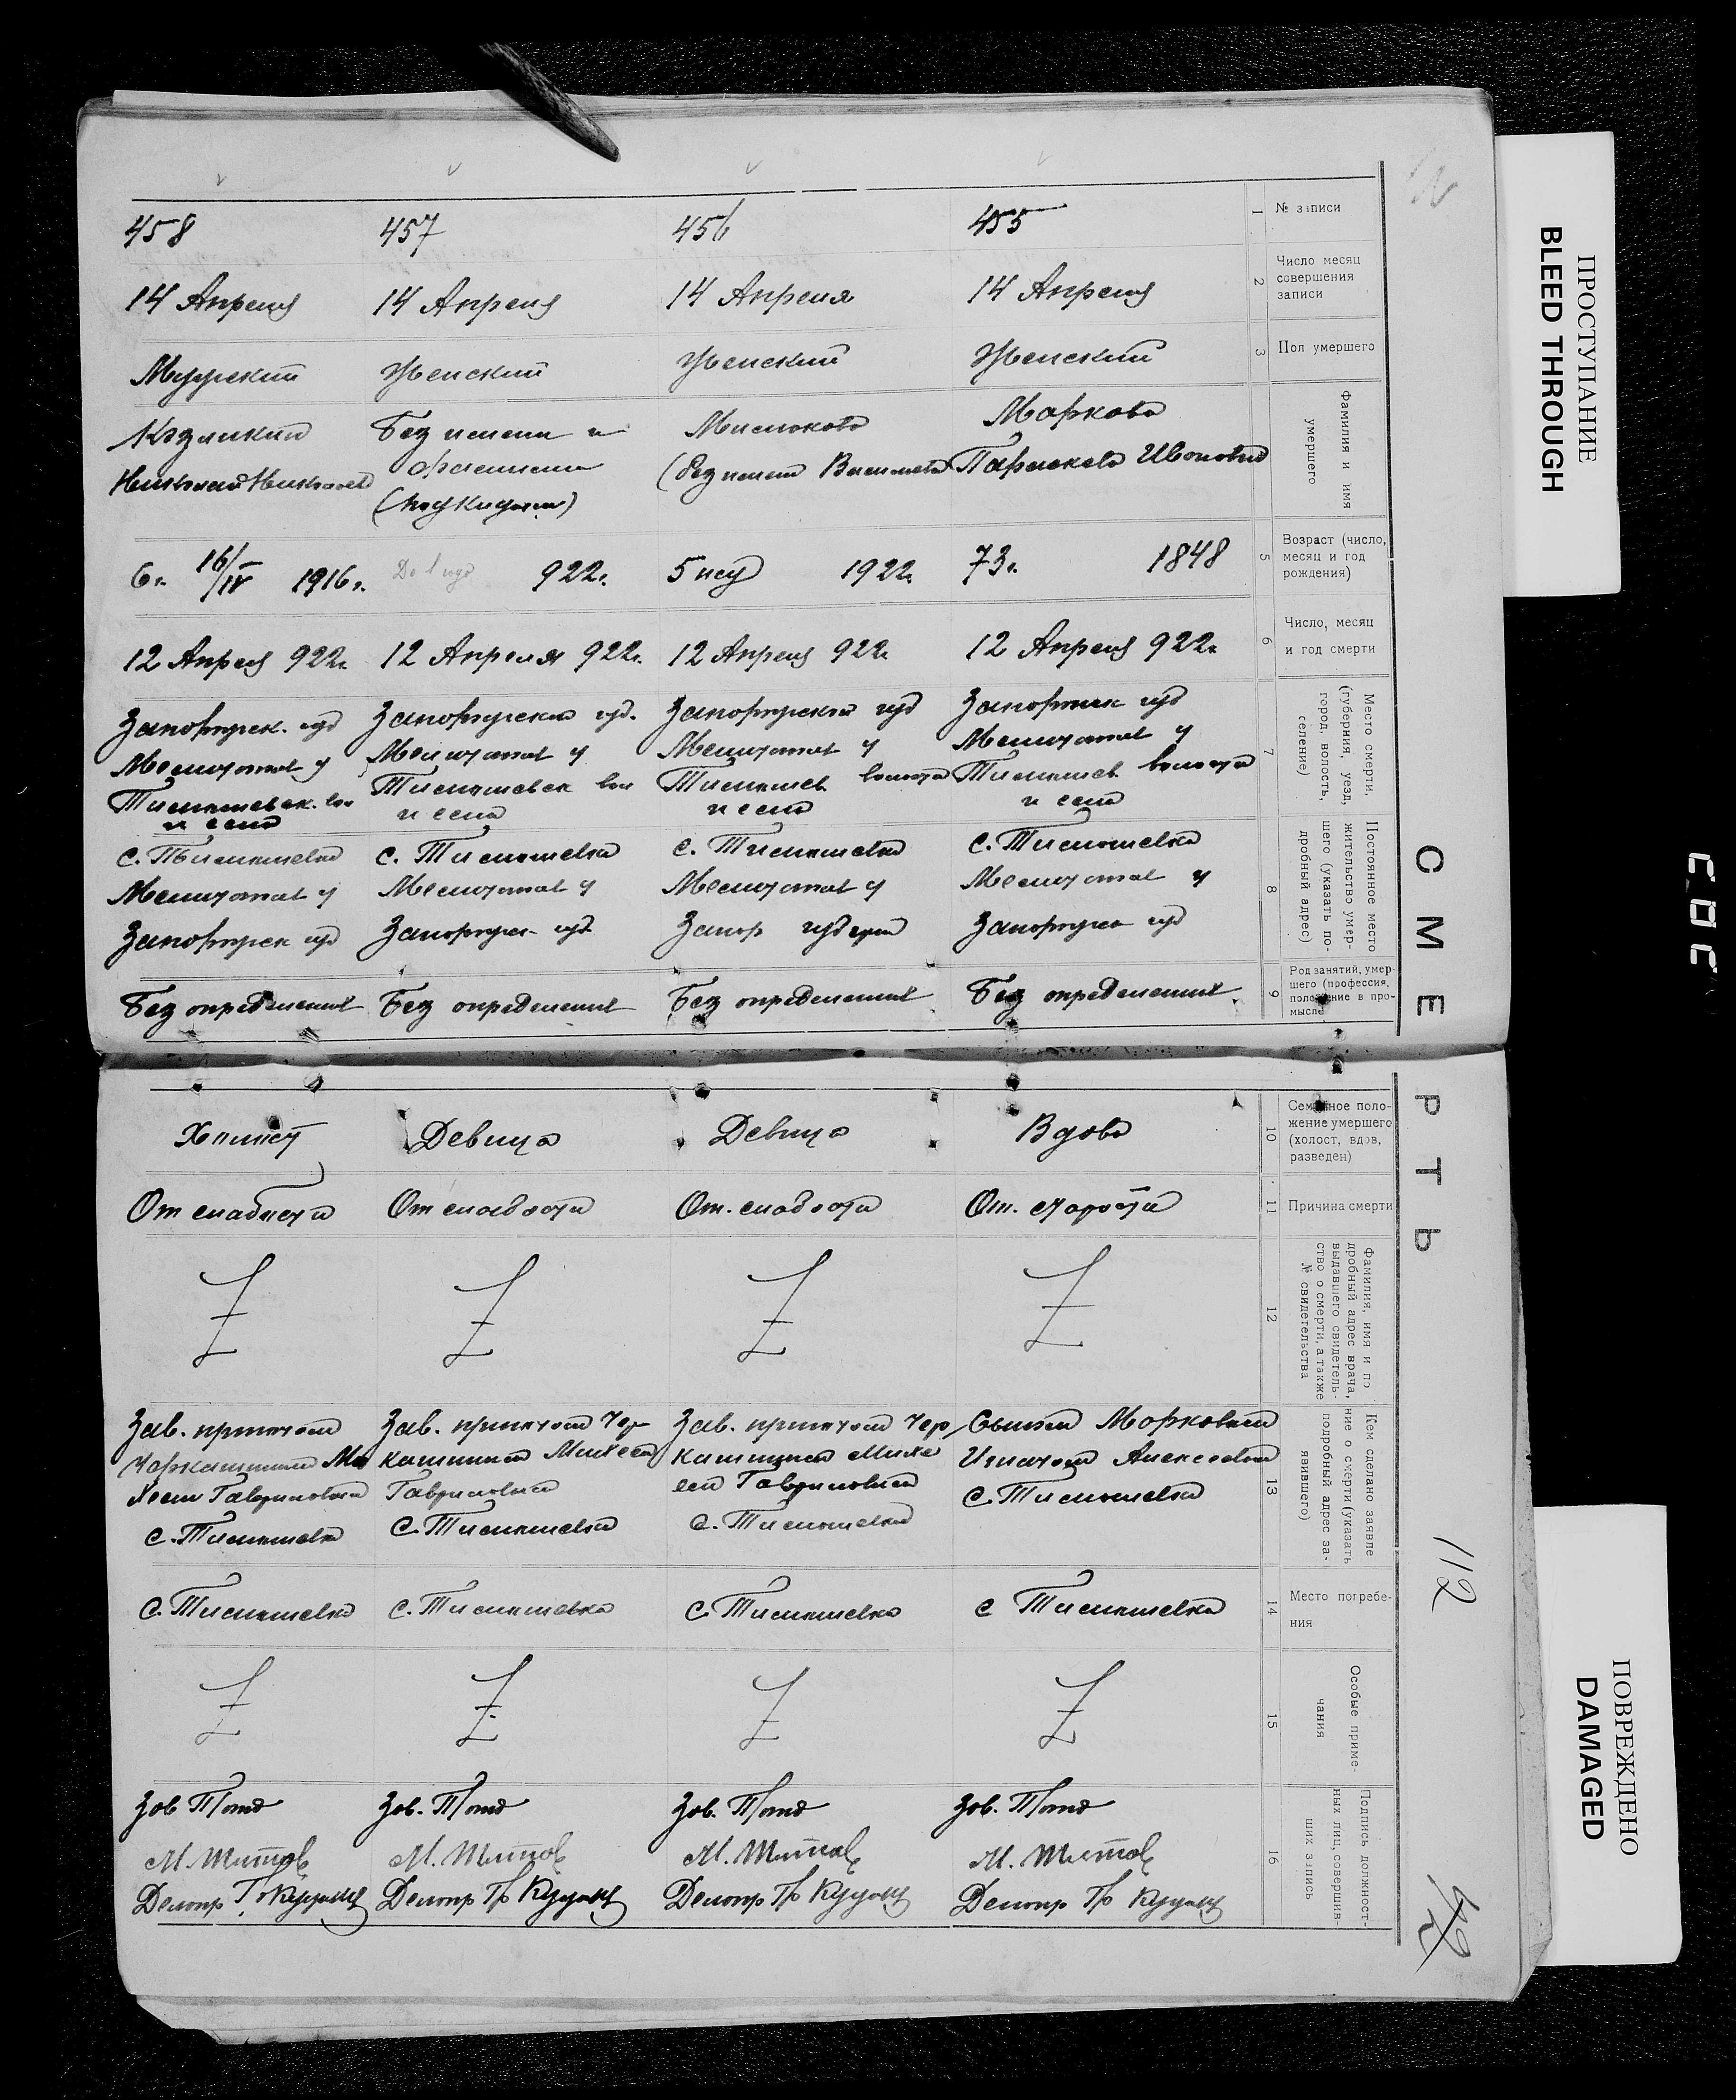 ПРОСТУПАНИЕ
BLEED THROUGH
СМЕРТЬ
112
ПОВРЕЖДЕНО
DAMAGED
№ записи
1
455
456
457
458
Число месяц
совершения
записи
2
14 Апреля
14 Апреля
14 Апреля
14 Апреля
Пол умершего
3
Женский
Женский
Женский
Мужский
Фамилия и имя
умершего
Маркова
Параскева Ивановна
(без имени
Без имени и
фамилии
(подкидыш)
Николай
Возраст (число,
месяц и год
рождения)
5
73 г. 1848
5 нед 1922 г.
До 1 года 922 г.
6 г. 16/IV 1916 г.
Число, месяц
и год смерти
6
12 Апреля 922 г.
12 Апреля 922 г.
12 Апреля 922 г.
12 Апреля 922 г.
Место смерти,
(губерния, уезд,
город, волость,
селение)
7
Запорожск губ
Мелитопол у
Тимошев волости
и села
Запорожской губ
Мелитопол у
Тимошев волости
и села
Запорожской губ.
Мелитопол у
Тимошевск вол
и села
Запорожск. губ
Мелитопол у
Тимошевск. вол
и села
Постоянное место
жительство умер-
шего (указать по-
дробный адрес)
8
с. Тимошевка
Мелитопол у
Запорожск губ
с. Тимошевка
Мелитопол у
Запор губерни
с. Тимошевка
Мелитопол у
Запорожск губ
с. Тимошевка
Мелитопол у
Запорожск губ
Род занятий, умер-
шего (профессия,
положение в про-
мысле
9
Без определения
Без определения
Без определения
Без определения
Семейное поло-
жение умершего
(холост, вдов,
разведен)
10
Вдова
Девица
Девица
Холост
Причина смерти
11
От. старости
От. слабости
От слабости
От слабости
Фамилия, имя и по
дробный адрес врача,
выдавшего свидетель-
ство о смерти, а также
№ свидетельства
12
Кем сделано заявле
ние о смерти (указать
подробный адрес за-
явившего)
13
Сыном Марковым
Игнатом Алексеевым
с. Тимошевка
Зав. приютом Чер
кашиным Михе
ем Гавриловым
с. Тимошевка
Зав. приютом Чер
кашиным Михеем
Гавриловым
с. Тимошевка
Зав. приютом
Черкашиным Ми
хеем Гавриловым
с. Тимошевка
Место погребе-
ния
14
с Тимошевка
с. Тимошевка
с. Тимошевка
с. Тимошевка
Особые приме-
чания
15
Подпись должност-
ных лиц, совершив-
ших запись
16
Зав.
М. Титов
Зав.
М. Титов
Зав.
М. Титов
Зав
М. Титов